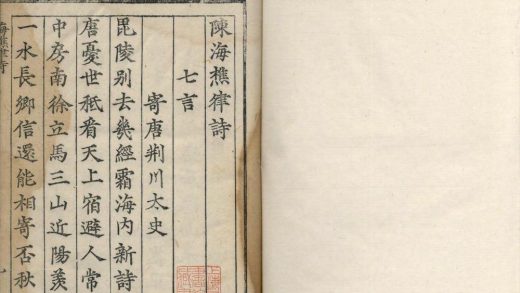 陳海樵律詩
七言
寄唐荆川太史
毘陵别去幾經霜海内新詩
唐憂世秪看天上宿避人常
中房南徐立馬三山近陽羨
一水長鄉信還能相寄否秋